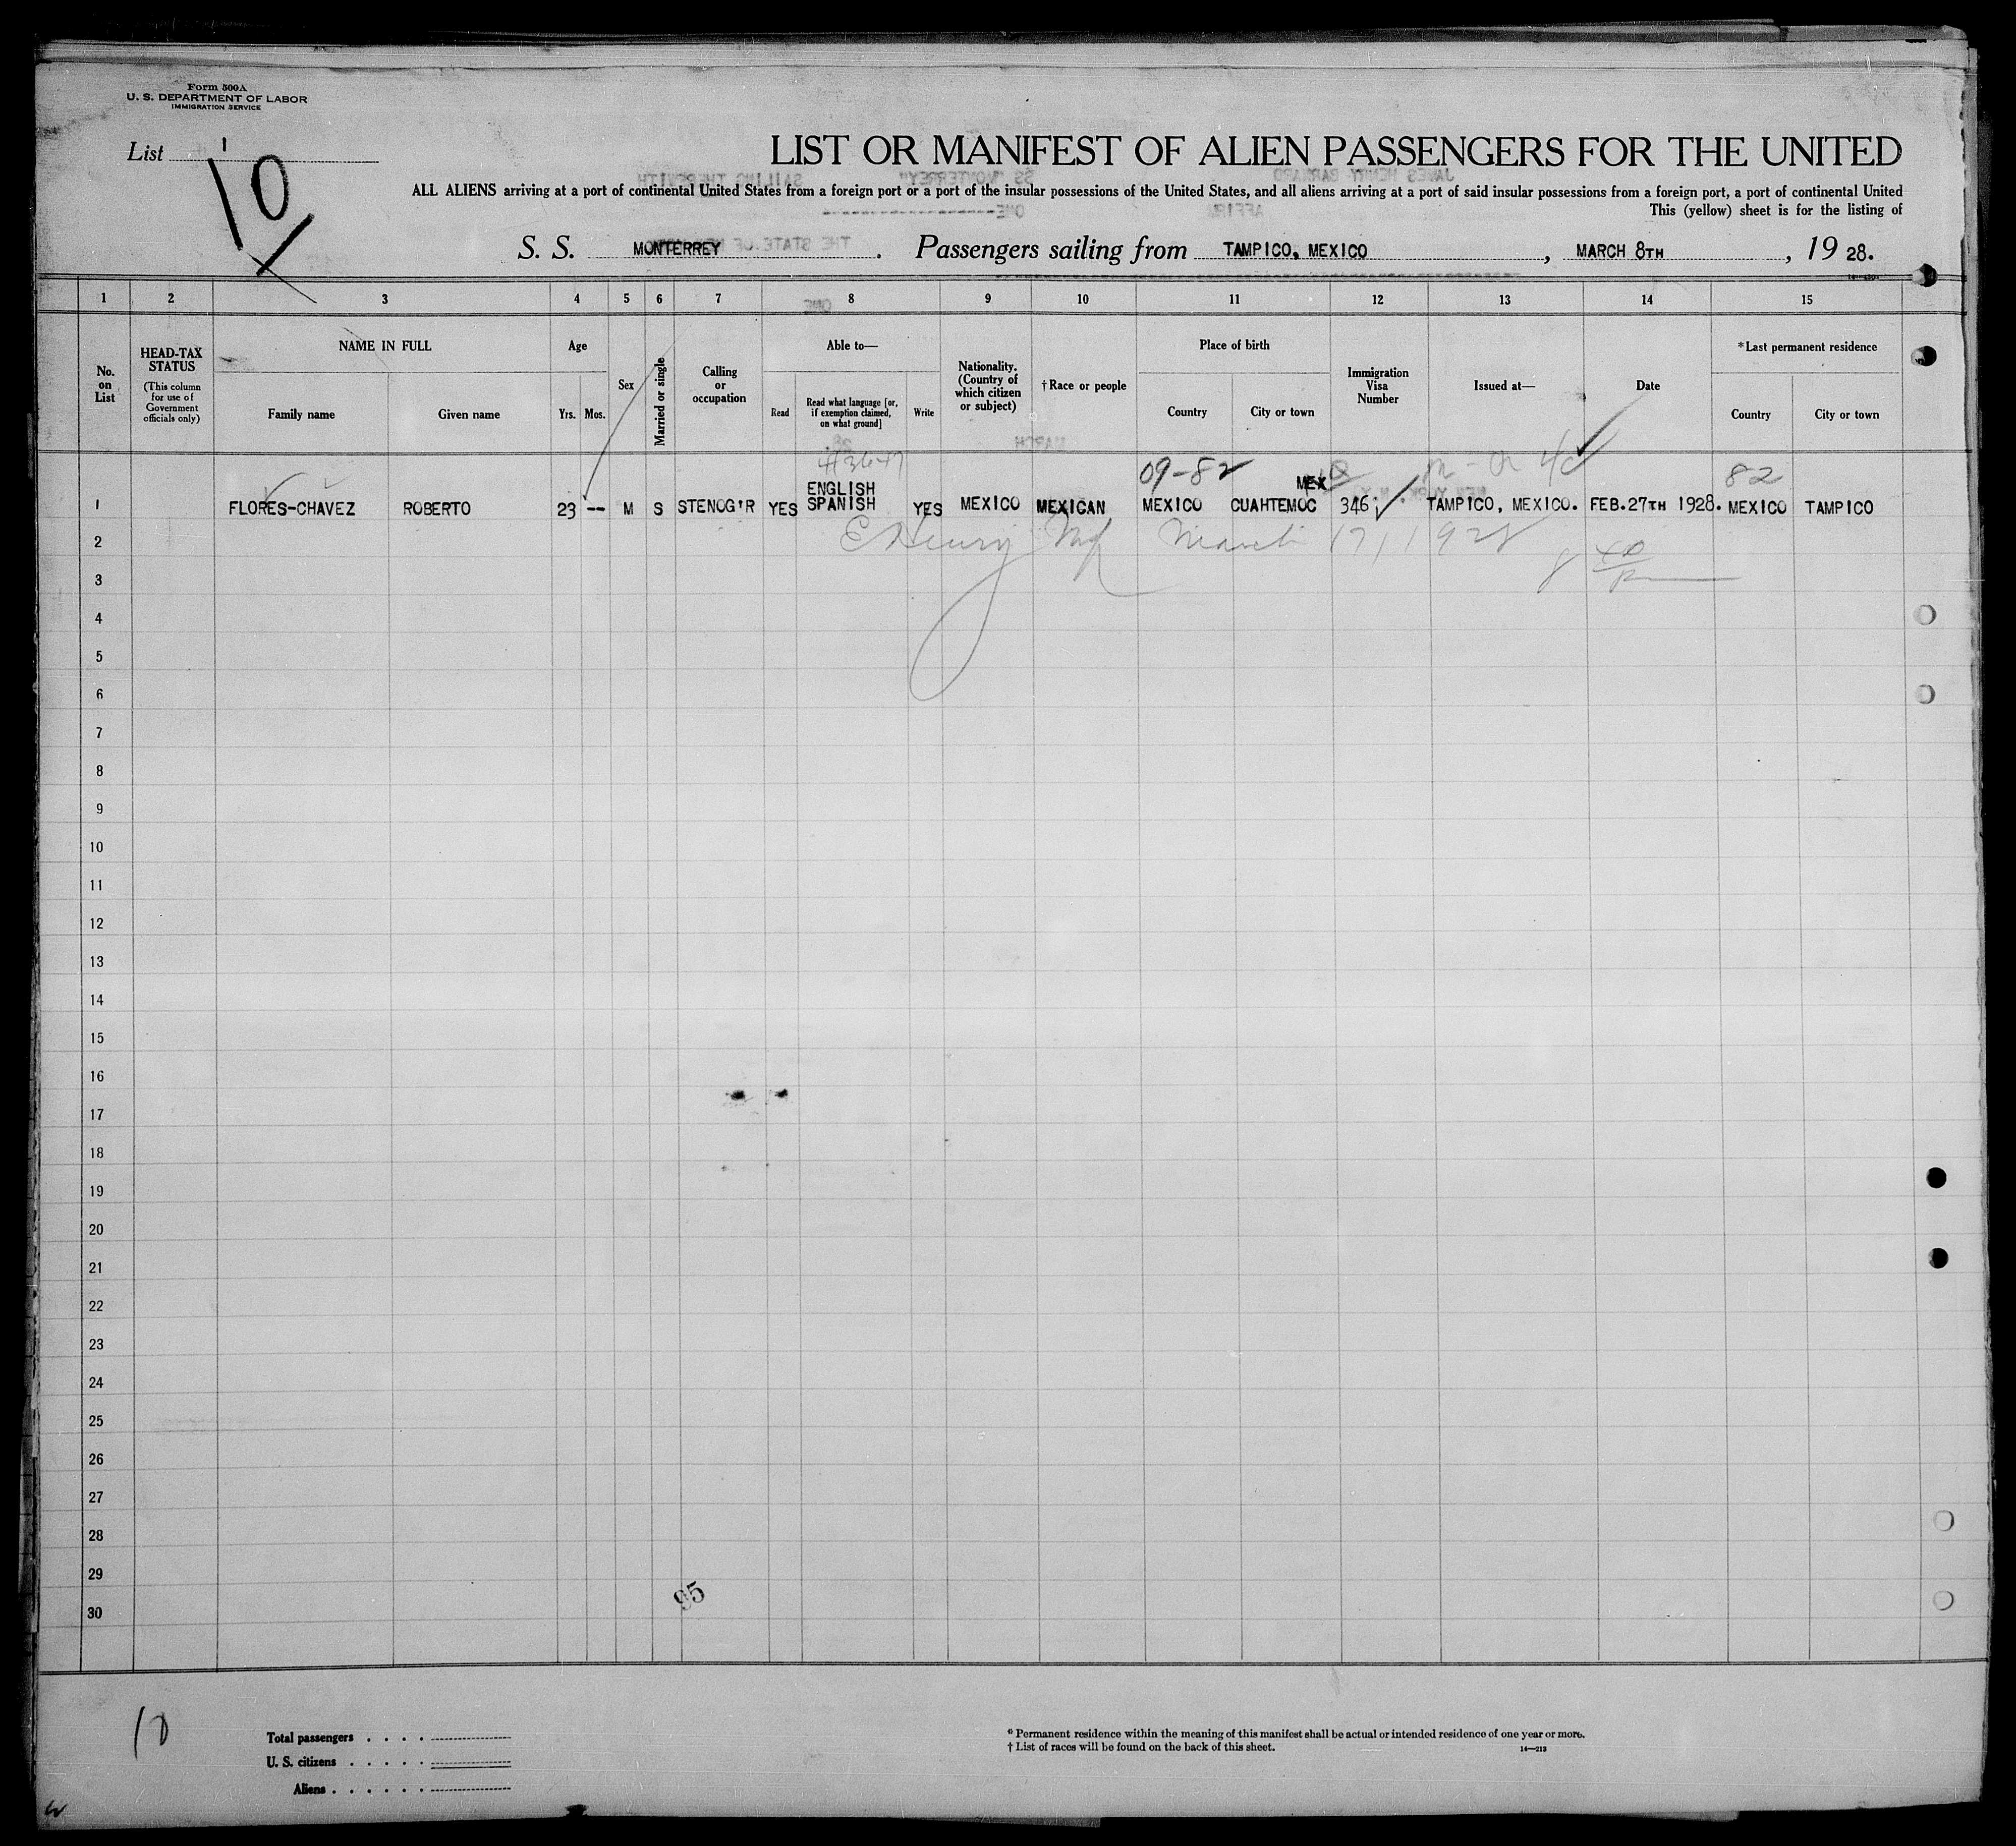 Form 500A
U. S. DEPARTMENT OF LABOR
IMMIGRATION SERVICE
List 1
10
LIST OR MANIFEST OF ALIEN PASSENGERS FOR THE UNITED
ALL ALIENS arriving at a port of continental United States from a foreign port or a port of the insular possessions of the United States, and all aliens arriving at a port of said insular possessions from a foreign port, a port of continental United
This (yellow) sheet is for the listing of
S. S. MONTERREY. Passengers sailing from TAMPICO, MEXICO, MARCH 8TH, 19 28.
1 2 3 4 5 6 7 8 9 10 11 12 13 14 15
No. on List
HEAD-TAX STATUS
(This column for use of Government officials only)
NAME IN FULL
Family name
Given name
Age
Yrs. Mos.
Sex
Married or single
Calling or occupation
Able to—
Read
Read what language [or, if exemption claimed, on what ground]
Write
Nationality. (Country of which citizen or subject)
† Race or people
Place of birth
Country
City or town
Immigration Visa Number
Issued at—
Date
*Last permanent residence
Country
City or town
09-82
82
ENGLISH
MEX
1 FLORES-CHAVEZ ROBERTO 23 -- M S STENOG'R YES SPANISH YES MEXICO MEXICAN MEXICO CUAHTEMOC 346. TAMPICO, MEXICO. FEB.27TH 1928. MEXICO TAMPICO
2 March 17, 1928
3
4
5
6
7
8
9
10
11
12
13
14
15
16
17
18
19
20
21
22
23
24
25
26
27
28
29
30
95
10
Total passengers . . . .
U. S. citizens . . . . .
Aliens . . . . . .
* Permanent residence within the meaning of this manifest shall be actual or intended residence of one year or more.
† List of races will be found on the back of this sheet.
14—213